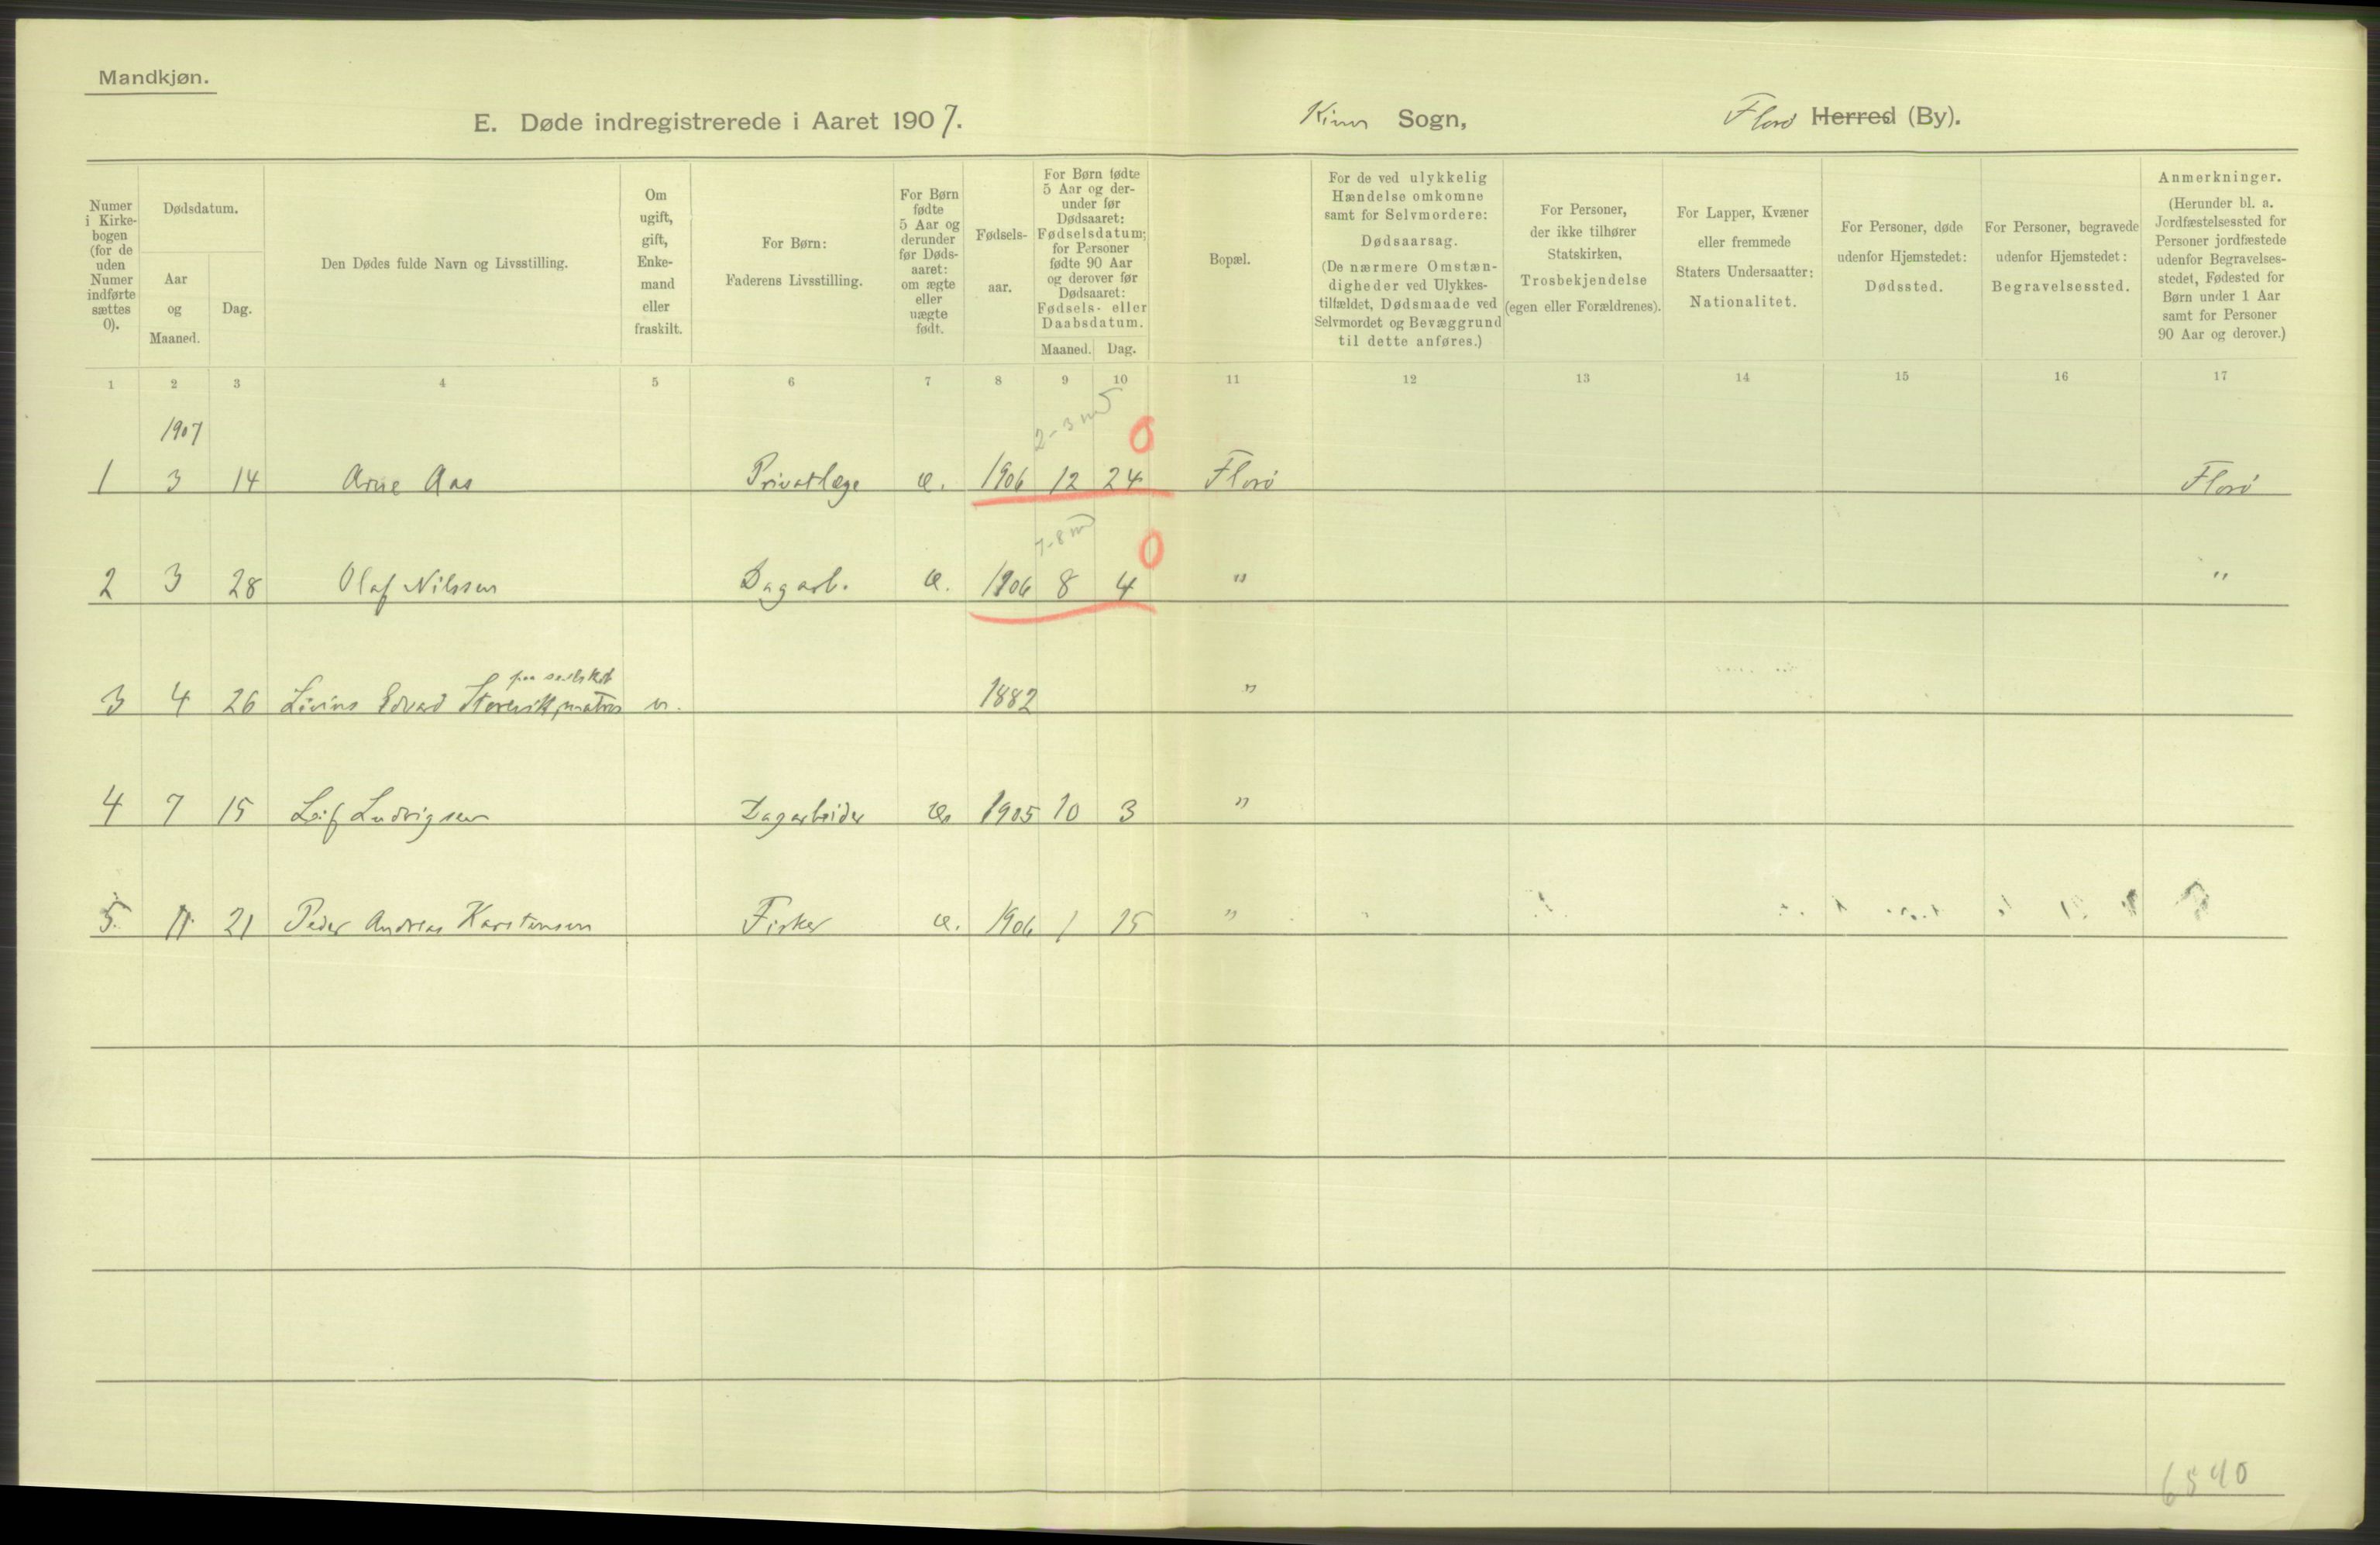 Mandkjøn.
E. Døde indregistrerede i Aaret 1907.
Kinn Sogn,
Florø Herred (By).
Numer i Kirkebogen (for de uden Numer indførte sættes 0).
Dødsdatum.
Aar og Maaned.
Dag.
Den Dødes fulde Navn og Livsstilling.
Om ugift, gift, Enkemand eller fraskilt.
For Børn: Faderens Livsstilling.
For Børn fødte 5 Aar og derunder før Dødsaaret: om ægte eller uægte født.
Fødselsaar.
For Børn fødte 5 Aar og derunder før Dødsaaret: Fødselsdatum; for Personer fødte 90 Aar og derover før Dødsaaret: Fødsels- eller Daabsdatum.
Maaned. Dag.
Bopæl.
For de ved ulykkelig Hændelse omkomne samt for Selvmordere: Dødsaarsag. (De nærmere Omstændigheder ved Ulykkestilfældet, Dødsmaade ved Selvmordet og Bevæggrund til dette anføres.)
For Personer, der ikke tilhører Statskirken, Trosbekjendelse (egen eller Forældrenes).
For Lapper, Kvæner eller fremmede Staters Undersaatter: Nationalitet.
For Personer, døde udenfor Hjemstedet: Dødssted.
For Personer, begravede udenfor Hjemstedet: Begravelsessted.
Anmerkninger. (Herunder bl. a. Jordfæstelsessted for Personer jordfæstede udenfor Begravelsesstedet, Fødested for Børn under 1 Aar samt for Personer 90 Aar og derover.)
1 2 3 4 5 6 7 8 9 10 11 12 13 14 15 16 17
1907
2-3 m
0
1 3 14 Arne Aas Privatlæge æ. 1906 12 24 Florø Florø
7-8 m
0
2 3 28 Olaf Nilssen Dagarb. æ. 1906 8 4 " "
paa
3 4 26 Livius Edvard Storevik, matros u. 1882 "
4 7 15 Leif Ludvigsen Dagarbeider æ. 1905 10 3 "
5. 11. 21 Peder Andreas Karstensen Fisker æ. 1906 1 15 "
6540